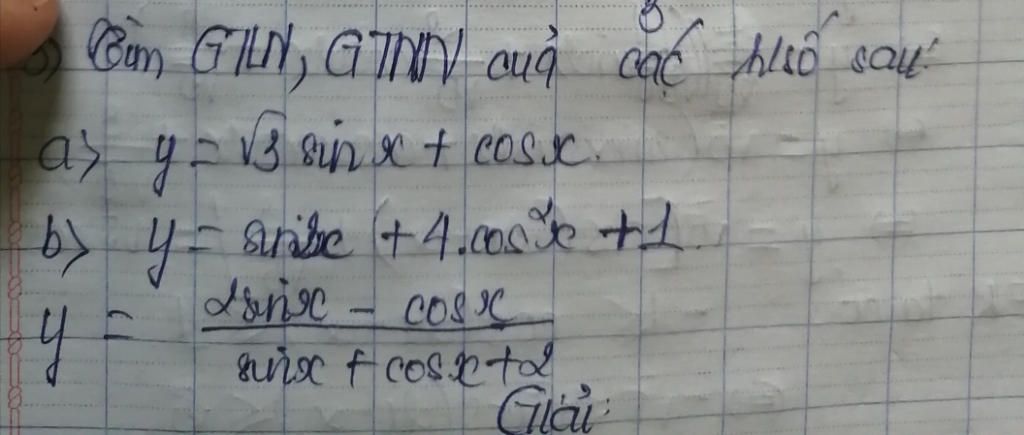 3) Tìm GTLN, GTNN cuả các h/số sau:
a> y = √3 sin x + cos x.
b> y = sin2x + 4.cos²x + 1.
y = \frac{2sin x - cos x}{sin x + cos x + 2}
Giải: